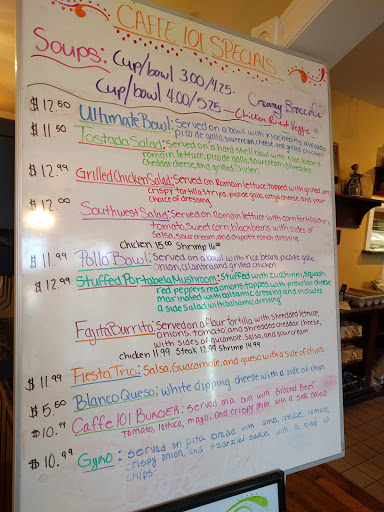 CAFFE 101 SPECIALS
Soups: Cup/bowl 3.00/4.25.
Creamy Broccoli
Cup/bowl 4.00/5.25
Chicken Veggie
$12.50 Ultimate Bowl: Served on a bowl with rice, beans, avocado,
pico de gallo, sourcream, cheese, and grilled chicken
$11.50 Tostada Salad: Served on a hard shell bowl with rice, beans
romain lettuce, pico de gallo, sourcream, shredded
cheddar cheese, and grilled chicken
$12.99 Grilled Chicken Salad: Served on Romain lettuce topped with grilled corn,
crispy tortilla strips, pico de gallo, cheese, and your
choice of dressing
$12.00 Southwest Salad: Served on Romain lettuce with corn tortilla
tomato, sweet corn, black beans with sides of
salsa, sourcream, and chipotle ranch dressing
Chicken 15.00 Shrimp 16.00
$11.99 Pollo Bowl: Served on a bowl with rice beans pico de gallo
onion, cilantro and grilled chicken
$12.99 Stuffed Portabela Mushroom: Stuffed with zucchini, squash,
red peppers, red onions, topped with provolon cheese
marinated with balsamic dressing and includes
a side salad with balsamic dressing
Fajita Burrito: Served on a flour tortilla with shredded lettuce,
onions, tomato, and shredded cheddar cheese,
with sides of guacamole, salsa, and sourcream
chicken 11.99 Steak 12.99 Shrimp 14.99
$11.99 Fiesta Trio: Salsa, Guacamole, and queso with a side of chips
$5.50 Blanco Queso: White dipping cheese with a side of chips
$10.99 Caffe 101 Burger: Served on a bun with Ground Beef
tomato, lettuce, mayo, and crispy onion with a side salad
$10.99 Gyro: Served on pita bread with lettuce, tomato,
crispy onion, and tzatziki sauce with a side of
chips.